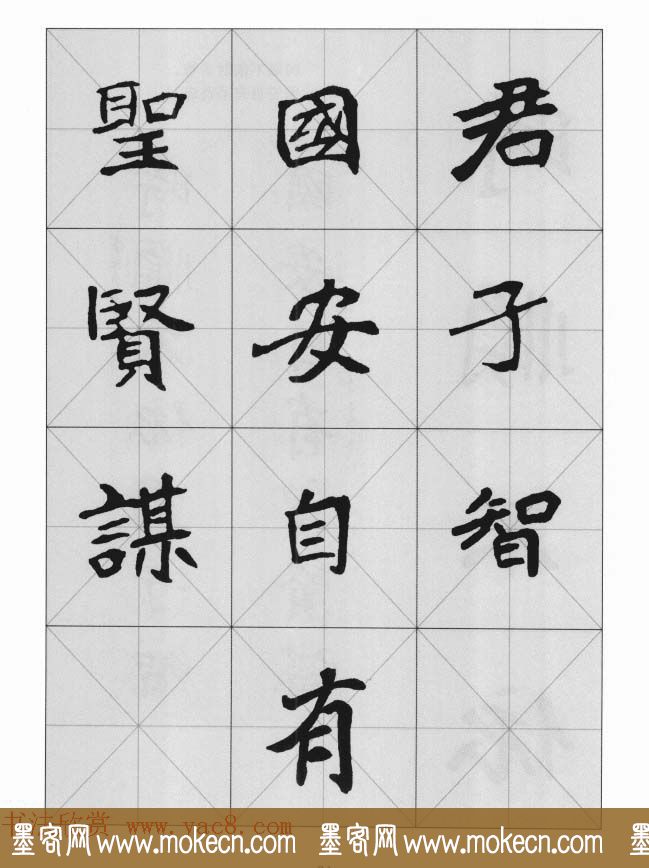 君子智
國安自有
聖賢謀
书法欣赏 www.yac8.com
墨客网 www.mokecn.com 墨客网 www.mokecn.com 墨客网